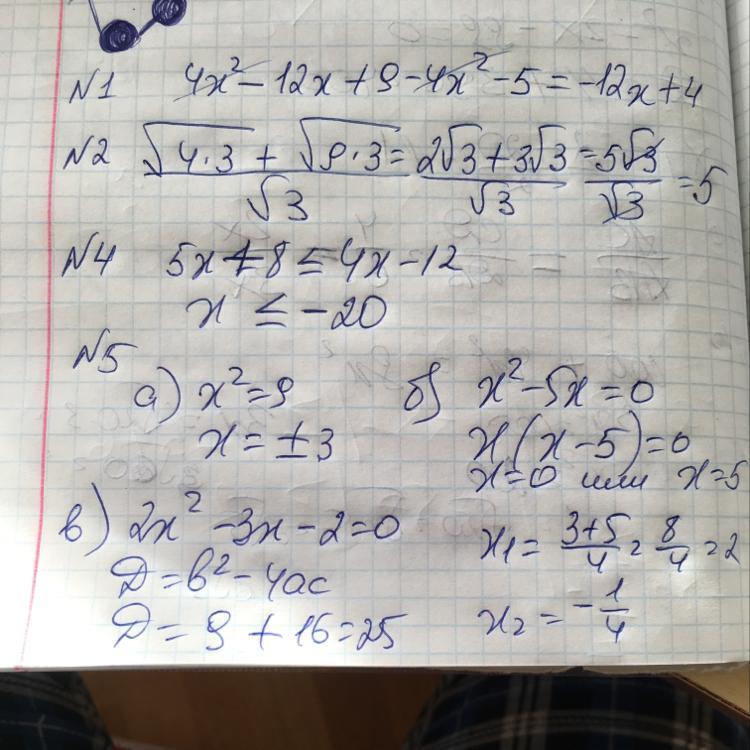 N1 4x² - 12x + 9 - 4x² - 5 = -12x + 4
N2 (√(4·3) + √(9·3))/√3 = (2√3 + 3√3)/√3 = 5√3/√3 = 5
N4 5x + 8 ≤ 4x - 12
x ≤ -20
N5
а) x² = 9
x = ±3
б) x² - 5x = 0
x(x - 5) = 0
x = 0 или x = 5
в) 2x² - 3x - 2 = 0
Д = в² - 4ас
Д = 9 + 16 = 25
x₁ = (3+5)/4 = 8/4 = 2
x₂ = -1/4